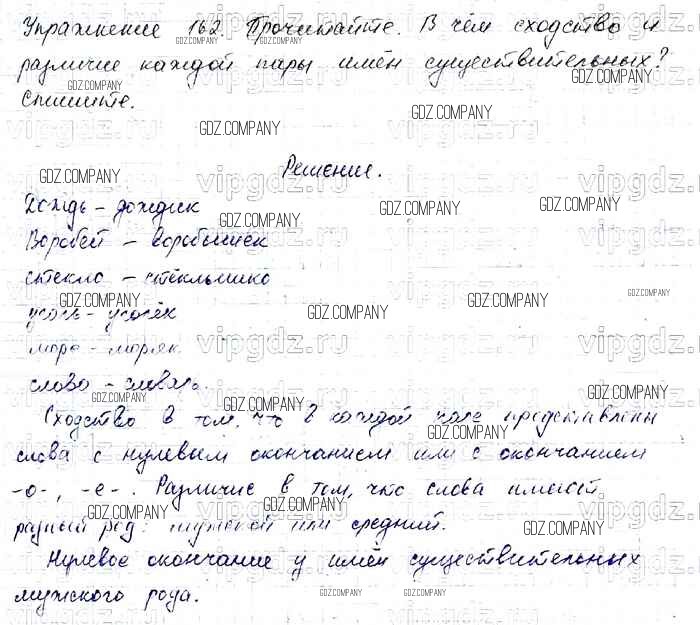 Упражнение 162. Прочитайте. В чём сходство и
различие каждой пары имён существительных?
Спишите.
Решение.
Дождь – дождик
Воробей – воробышек
стекло – стёклышко
море – моряк
слово –
Сходство в том, что в каждой паре представлены
слова с нулевым окончанием или с окончанием
-о-, -е-. Различие в том, что слова имеют
разный род: мужской или средний.
Нулевое окончание у имён существительных
мужского рода.
GDZ.COMPANY
vipgdz.ru